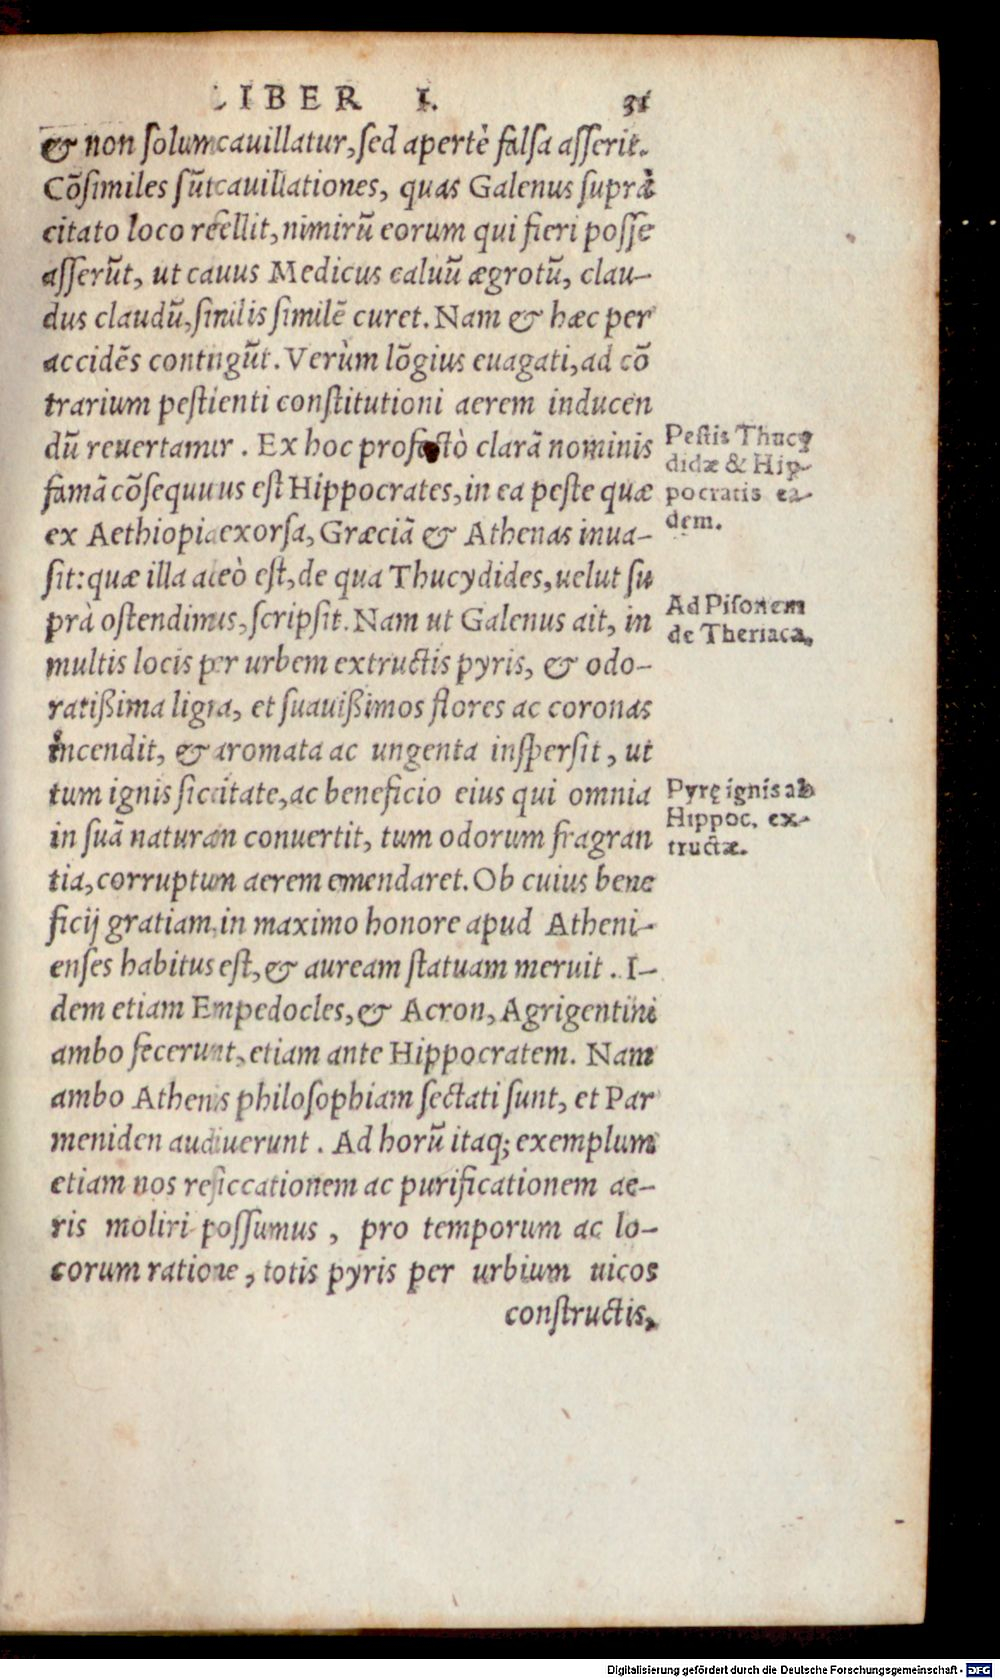 LIBER I. 31
& non solum cauillatur, sed apertè falsa asserit.
Cōsimiles sūt cauillationes, quas Galenus suprà
citato loco refellit, nimirū eorum qui fieri posse
asserūt, ut cauus Medicus caluū ægrotū, clau-
dus claudū, similis similē curet. Nam & hæc per
accidēs contingūt. Verùm lōgius euagati, ad cō
trarium pestienti constitutioni aerem inducen
dū reuertamur. Ex hoc profectò clarā nominis
famā cōsequutus est Hippocrates, in ea peste quæ
ex Aethiopia exorsa, Græciā & Athenas inua-
sit: quæ illa adeò est, de qua Thucydides, uelut su
prà ostendimus, scripsit. Nam ut Galenus ait, in
multis locis per urbem extructis pyris, & odo-
ratißima ligna, et suauißimos flores ac coronas
incendit, & aromata ac ungenta inspersit, ut
tum ignis siccitate, ac beneficio eius qui omnia
in suā naturam conuertit, tum odorum fragran
tia, corruptum aerem emendaret. Ob cuius bene
ficij gratiam, in maximo honore apud Atheni-
enses habitus est, & auream statuam meruit. I-
dem etiam Empedocles, & Acron, Agrigentini
ambo fecerunt, etiam ante Hippocratem. Nam
ambo Athenis philosophiam sectati sunt, et Par
meniden audiuerunt. Ad horū itaq; exemplum
etiam nos resiccationem ac purificationem ae-
ris moliri possumus, pro temporum ac lo-
corum ratione, totis pyris per urbium uicos
constructis,
Pestis Thucy
didæ & Hip-
pocratis ea-
dem.
Ad Pisonem
de Theriaca.
Pyrę ignis ab
Hippoc. ex-
tructæ.
Digitalisierung gefördert durch die Deutsche Forschungsgemeinschaft - DFG